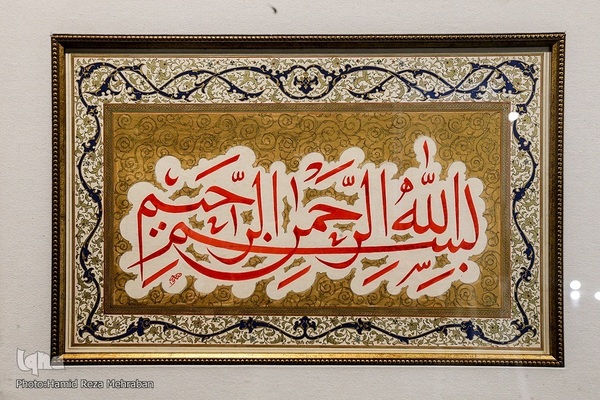 بسم الله الرحمن الرحيم
Photo:Hamid Reza Mehraban